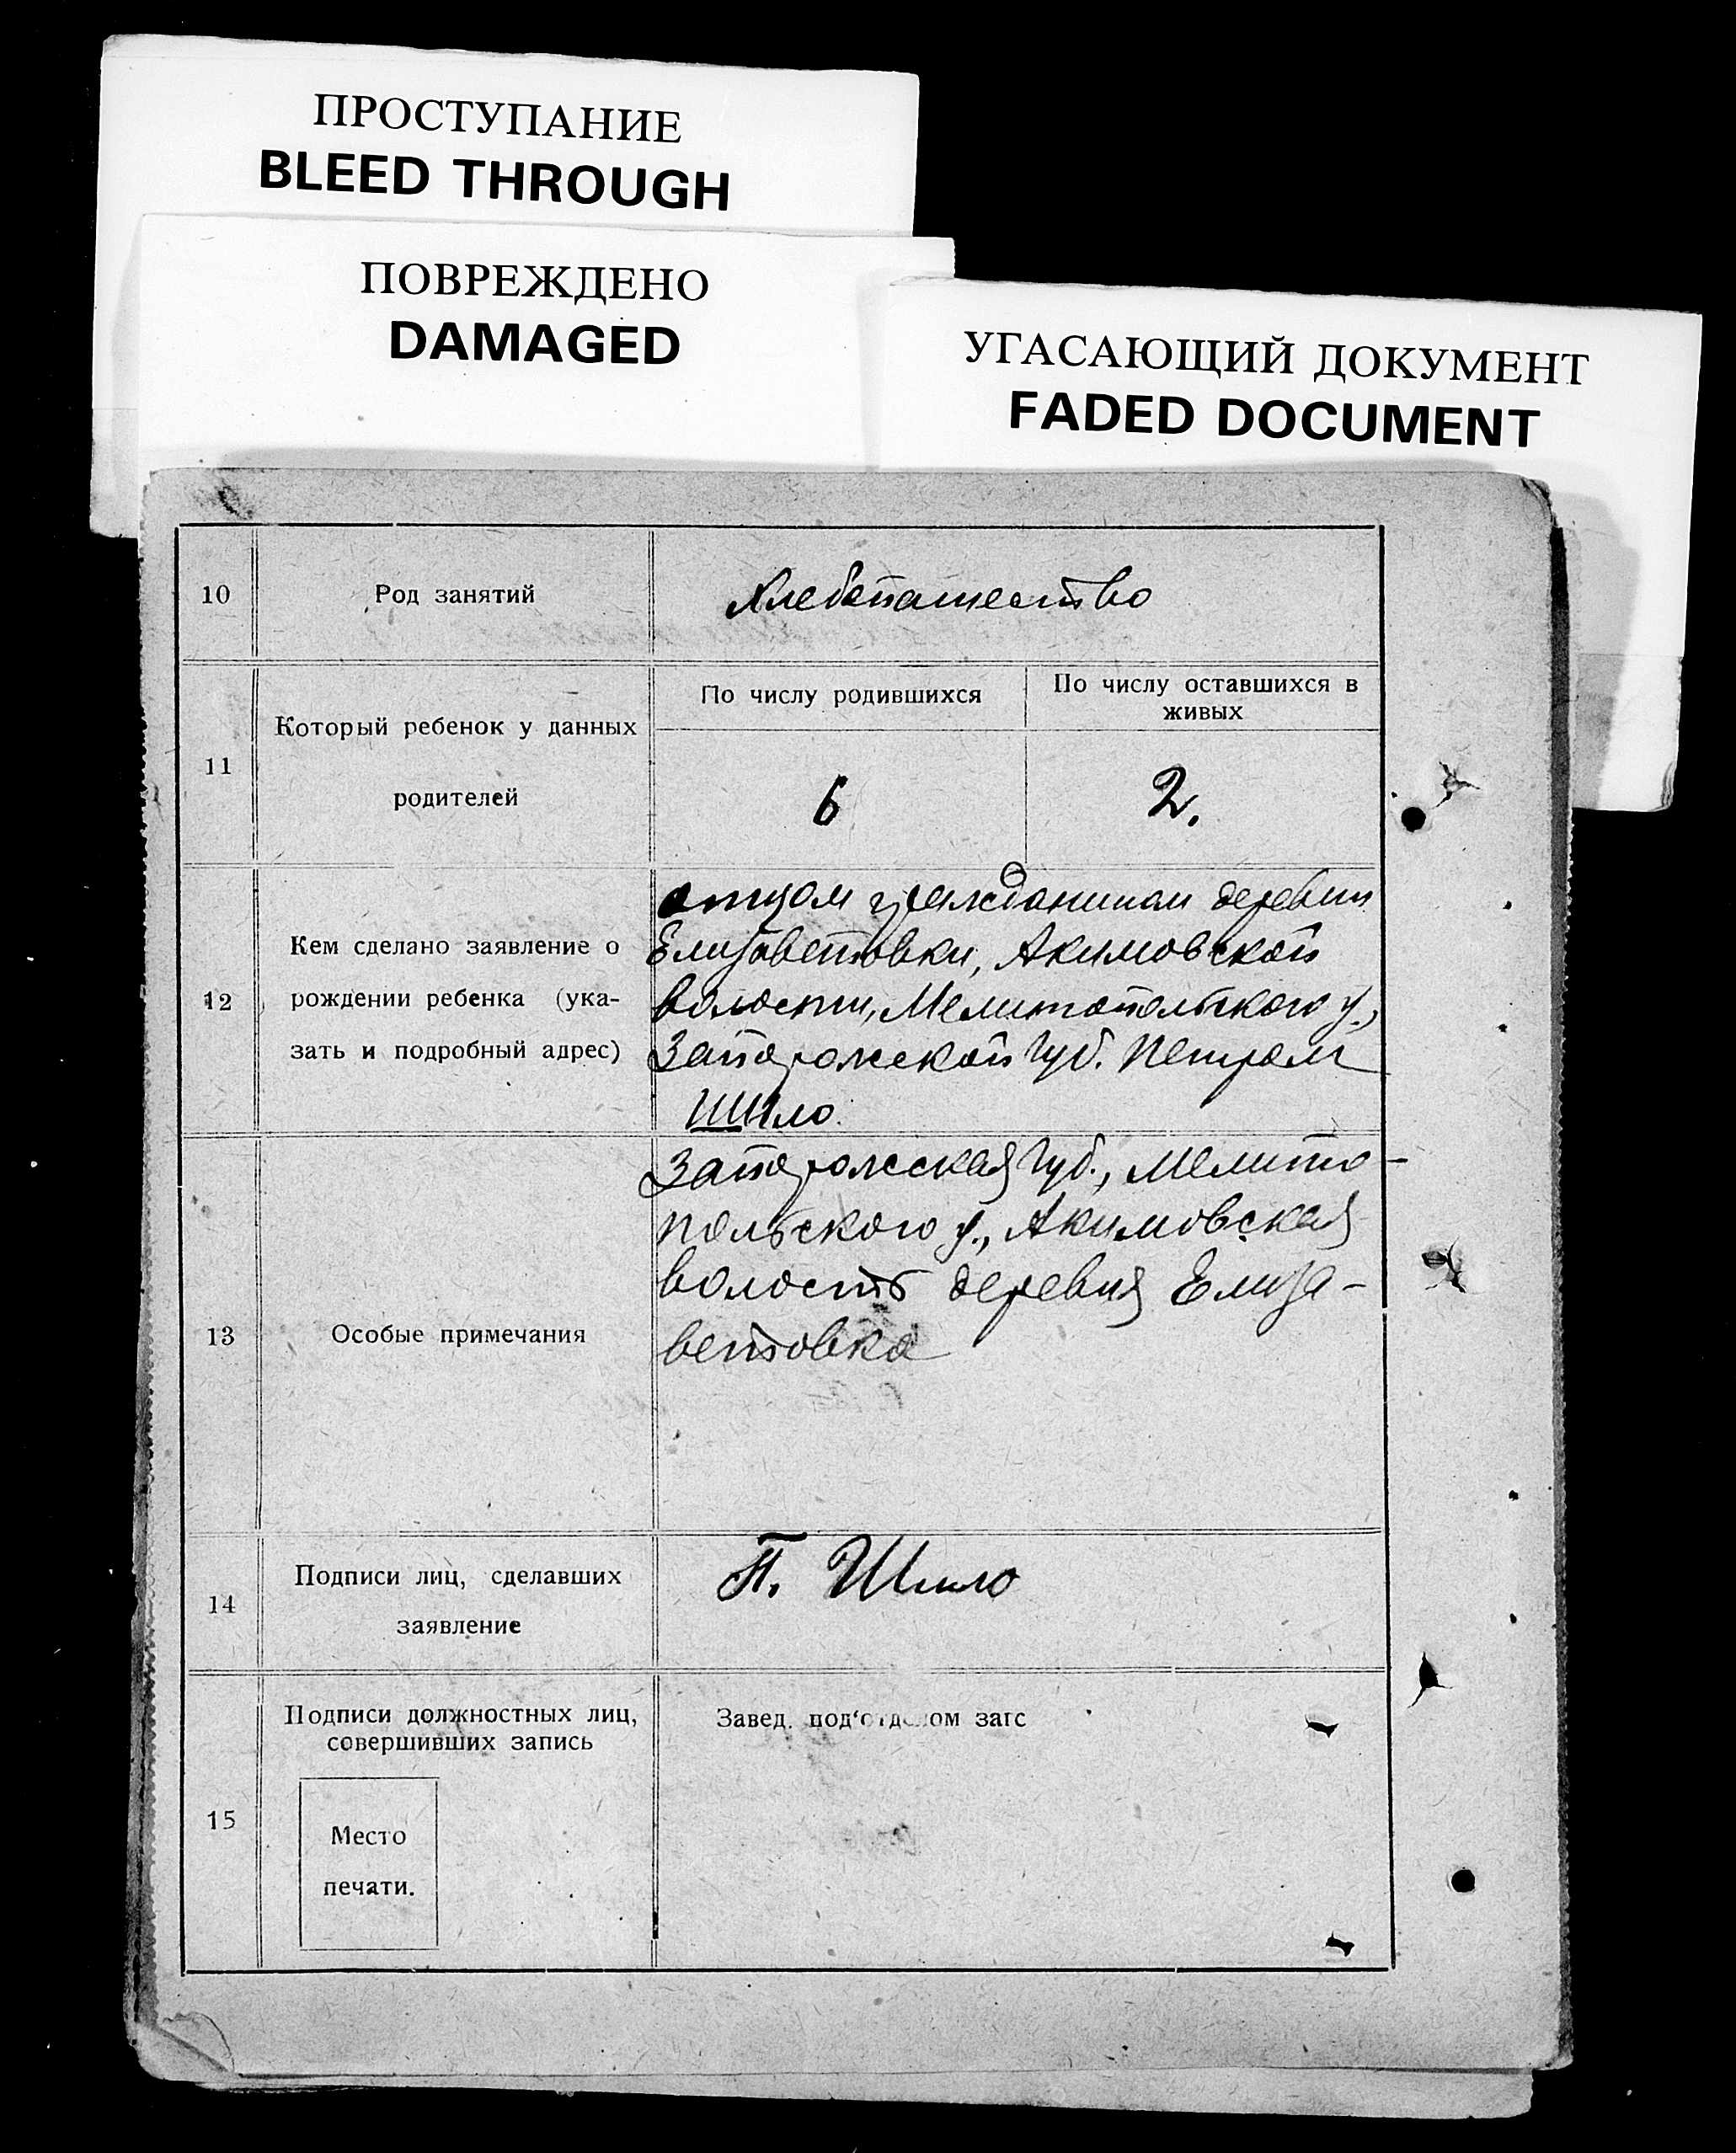 ПРОСТУПАНИЕ
BLEED THROUGH
ПОВРЕЖДЕНО
DAMAGED
УГАСАЮЩИЙ ДОКУМЕНТ
FADED DOCUMENT
10
Род занятий
Хлебопашество
11
Который ребенок у данных
родителей
По числу родившихся
По числу оставшихся в
живых
6
2.
12
Кем сделано заявление о
рождении ребенка (ука-
зать и подробный адрес)
отцом гражданином деревни
Елизаветовки, Акимовской
волости, Мелитопольского у.,
Запорожской губ. Петром
Шило.
13
Особые примечания
Запорожская губ., Мелито-
польского у., Акимовская
волость деревня Елиза-
ветовка
14
Подписи лиц, сделавших
заявление
П. Шило
15
Подписи должностных лиц,
совершивших запись
Место
печати.
Завед. под'отделом загс